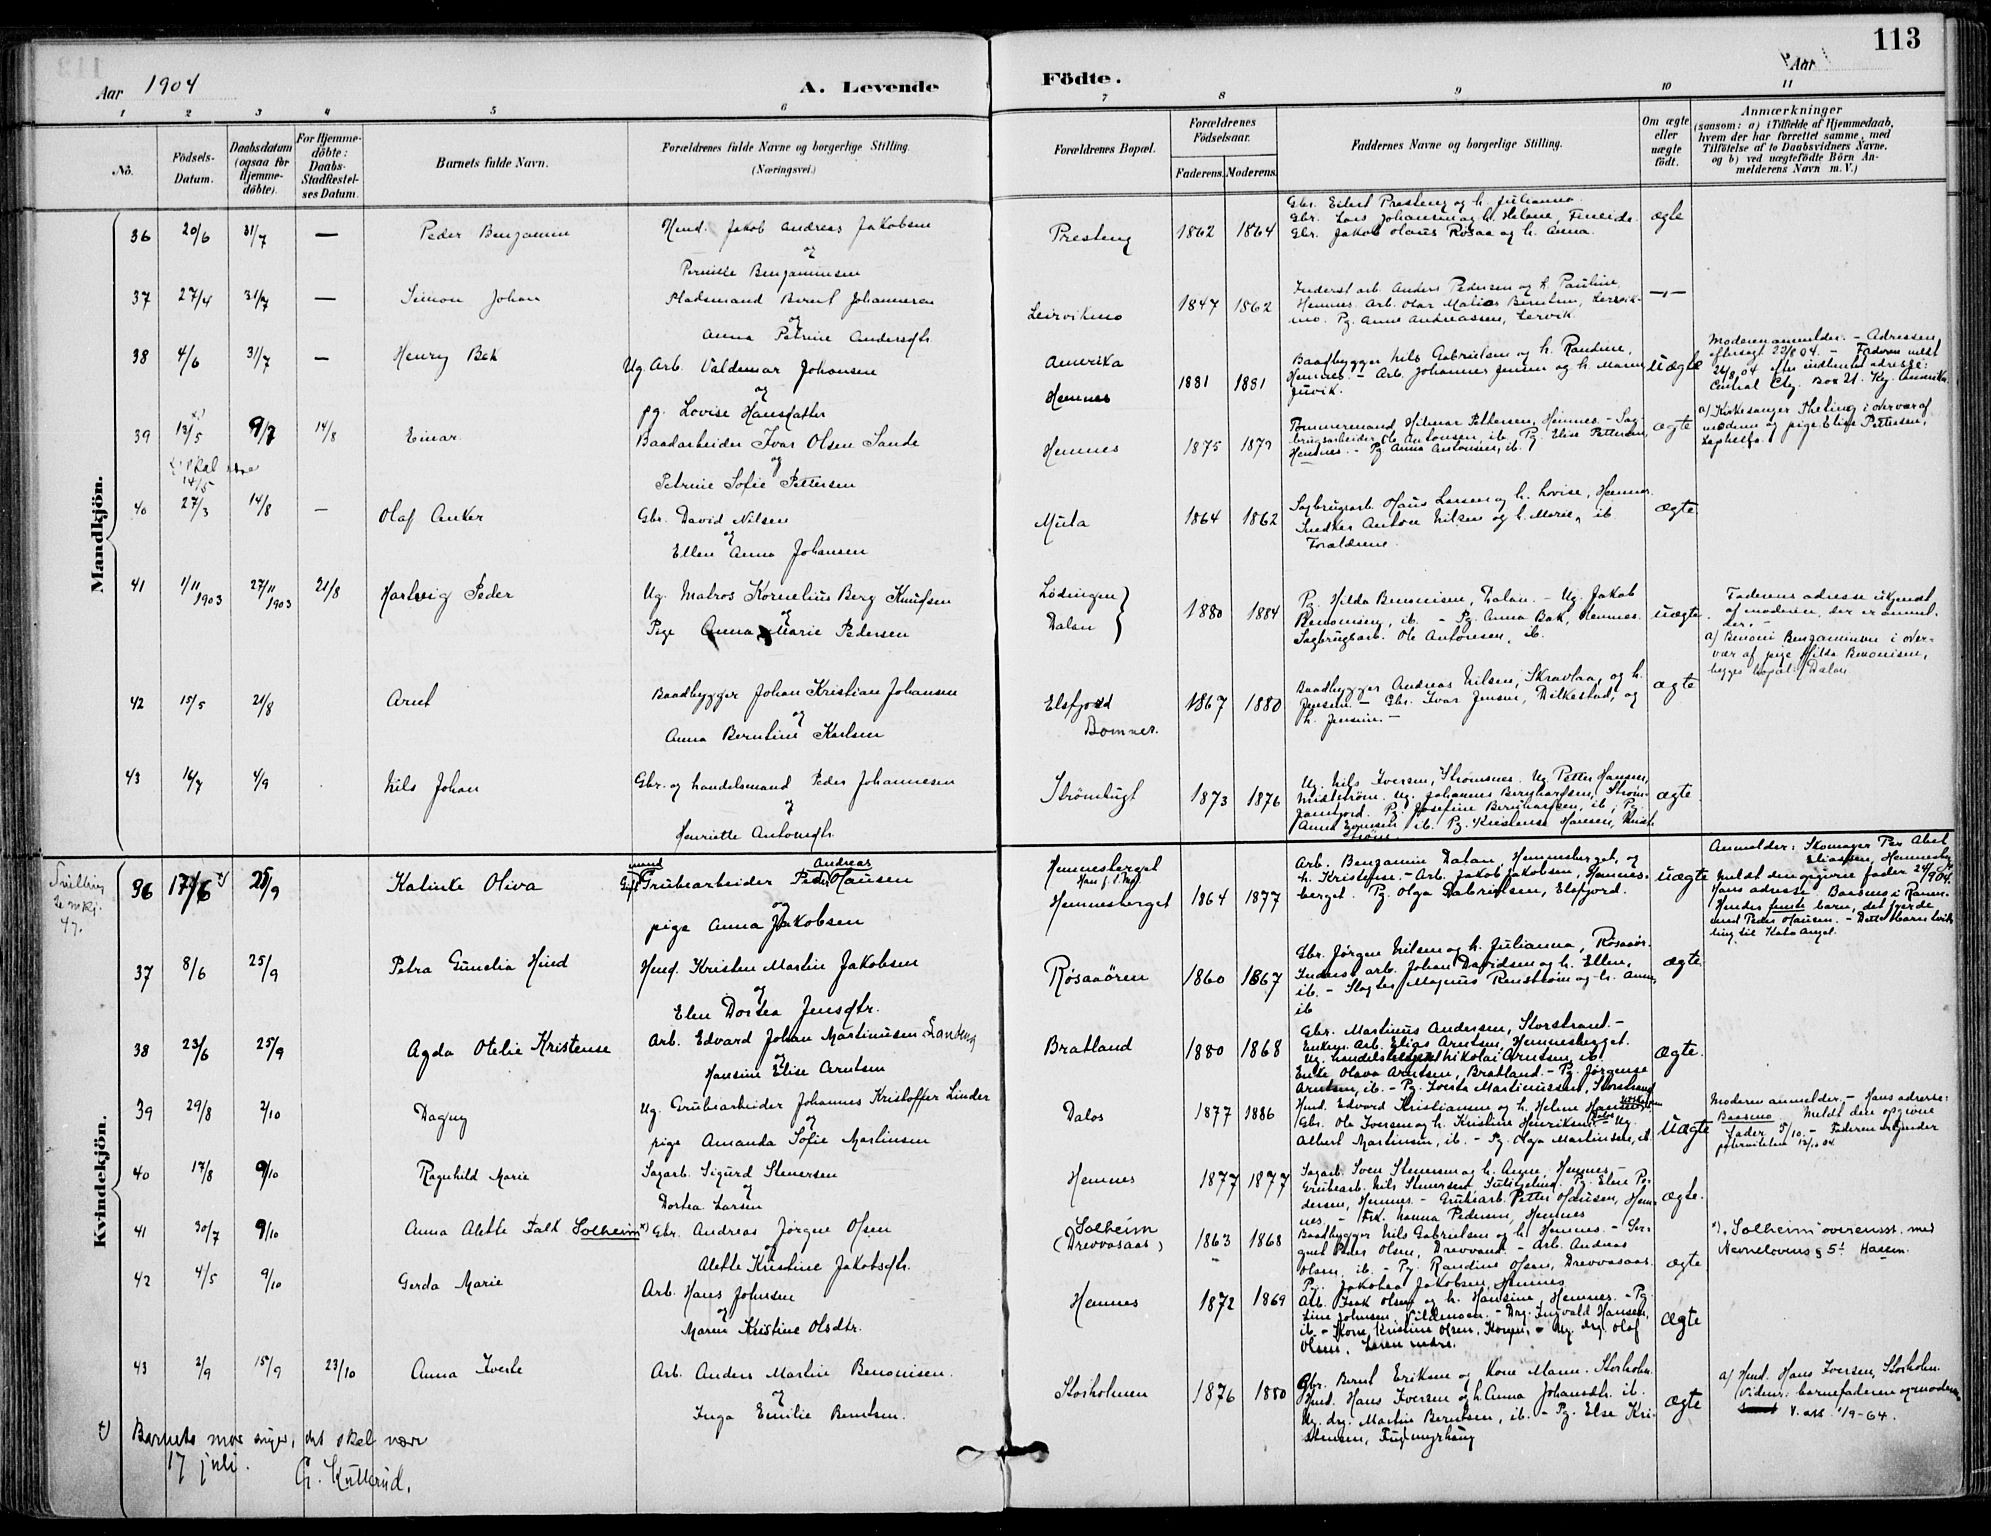 113
Aar 1904
A. Levende
Födte.
Aar
1 2 3 4 5 6 7 8 9 10 11
No.
Födsels-
Datum.
Daabsdatum
(ogsaa for
Hjemme-
döbte).
For Hjemme-
döbte:
Daabs-
Stadfæstel-
ses Datum.
Barnets fulde Navn.
Forældrenes fulde Navne og borgerlige Stilling.
(Næringsvei.)
Forældrenes Bopæl.
Forældrenes
Födselsaar.
Faderens. Moderens.
Faddernes Navne og borgerlige Stilling.
Om ægte
eller
uægte
födt.
Anmærkninger
(saasom: a) i Tilfælde af Hjemmedaab,
hvem der har forrettet samme, med
Tilföielse af to Daabsvidners Navne,
og b) ved uægtefödte Börn An-
melderens Navn m. V.)
Mandkjön.
36 20/6 31/7 — Peder Benjamin
Hmd. Jakob Andreas Jakobsen
og
Pernille Benjaminsen
Presteng 1862 1864
Gbr. Eilert Presteng og h. Julianna
Gbr. Lars Johansen og h. Helene, Fineide.
Gbr. Jakob Olaus Røsaa og h. Anna.
ægte
37 27/4 31/7 — Simon Johan
Pladsmand Bernt Johannesen
og
Anna Petrine Andersdtr.
Leirvikmo 1847 1862
Inderst arb. Anders Pedersen og h. Pauline,
Hemnes. Arb. Olar Matias Berntsen, Leirvik-
mo. Pg. Anne Andreassen, Lervik
—"—
38 4/6 31/7 — Henry Bak
Ug. Arb. Valdemar Johansen
og
pg. Lovise Hansdatter
Amerika
Hemnes 1881 1881
Baadbygger Nils Gabrielsen og h. Randine,
Hemnes. — Arb. Johannes Jensen og h. Maren
Juvik.
uægte
Moderen anmelder. — Adressen
eftersagt 23/8 04. — Faderen meldt
24/8 04 efter indhentet adresse:
Central Cty. Box 21. Ky. Amerika.
39 13/5 9/7 14/8 Einar.
Baadarbeider Ivar Olsen Sande
og
Petrine Sofie Pettersen
skal være
14/5
Hemnes 1875 1879
Tømmermand Hilmar Pettersen, Hemnes. — Sag-
brugsarbeider Ole Antonsen, ib. Pg. Elise Pettersen,
Hemnes. — Pg Anna Antonsen, ib.
ægte
a) Kirkesanger Theting i overvær af
moderen og pige Elise Pettersen,
40 27/3 14/8 — Olaf Anker
Gbr. David Nilsen
og
Ellen Anna Johansen
Mula 1864 1862
Sagbrugsarb. Hans Larsen og h. Lovise, Hemnes.
Snedker Anton Nilsen og h. Marie, ib
Forældrene.
ægte
41 1/11 1903 27/11 1903 21/8 Hartvig Peder
Ug. Matros Kornelius Berg Knudsen
og
Pige Anna Marie Pedersen
Lødingen
Dalan 1880 1884
Pg. Hilda Benonisen, Dalan. — Ug. Jakob
Benonisen, ib. — Pg. Anna Bak, Hemnes.
Sagbrugsarb. Ole Antonsen, ib.
uægte
Faderens adresse ukjendt
af moderen, der er anmel-
der. —
a) Benoni Benjaminsen i over-
vær af pige Hilda Benonisen,
begges bopæl: Dalan
42 15/5 21/8 Arnt
Baadbygger Johan Kristian Johansen
og
Anna Berntine Karlsen
Elsfjord
Bomnes. 1867 1880
Baadbygger Andreas Nilsen, Skravlaa, og h.
Jensen. — Gbr. Ivar Jensen, Dilkestad, og
h. Jensine. —
ægte
43 16/7 4/9 Nils Johan
Gbr. og handelsmand Peder Johannesen
og
Henriette Antonsdtr.
Strömbugt 1873 1876
Ug. Nils Iversen, Strømsnes. Ug. Petter Hansen,
Midtstrøm. Ug. Johannes Bernhardsen, Strøm-
Pg. Josefine Bernhardsen, ib; Pg.
ib. Pg. Kristense Hansen, Midt-
strøm
ægte
Kvindekjön.
Tvilling
47.
36 17/6 25/9 Katinka Oliva
Grubearbeider Peder Andreas Olausen
og
pige Anna Jakobsen
Hemnesberget
Hemnesberget 1864 1877
Arb. Benjamin Dalan, Hemnesberget, og
h. Kristine. — Arb. Jakob Jakobsen, Hemnes-
berget. Pg. Olga Gabrielsen, Elsfjord.
uægte
Anmelder: Skomager Per Abel
Eliassen, Hemnesbg.
Meldt den opgivne fader 24/9 04.
Hans adresse: Basmo i Ranen.
Hendes femte barn, det fjerde
med Peder Olausen. — Dette barn tvil-
ling til
37 8/6 25/9 Petra Gunelia Hind
Hmd. Kristen Martin Jakobsen
og
Elen Dortea Jensdtr.
Røsaaören 1860 1867
Gbr. Jørgen Nilsen og h. Julianna, Røsaaör.
Inderst arb. Johan Davidsen og h. Ellen,
ib. — Slagter Magnus Renstrøm og h. Anna,
ib
ægte
38 23/6 25/9 Agda Otelie Kristense
Arb. Edvard Johan Martinusen Sandeng
og
Hansine Elise Arntsen
Bratland 1880 1868
Gbr. Martinus Andersen, Storstrand. —
Enkem. Arb. Elias Arntsen, Hemnesberget.
Ug. handelsbetjent Nikolai Arntsen, ib.
Enke Olava Arntsen, Bratland. — Pg. Jørgense
Arntsen, ib. — Pg. Martinussen, Storstrand
ægte.
39 29/8 2/10 Dagny
Ug. Grubearbeider Johannes Kristoffer Linder
og
pige Amanda Sofie Martinsen
Dalos 1877 1886
Hmd. Edvard Kristiansen og h. Helene
Gbr. Ole Iversen og h. Kristine Henriksen. — Ug.
Albert Martinsen, ib. — Pg. Olga Martinsen, ib
uægte
Moderen anmelder. — Hans adresse:
Bassmo. Meldt den opgivne
fader 5/10. — Faderen erkjender
paterniteten 12/10 04.
40 17/8 9/10 Ragnhild Marie
Sagarb. Sigurd Stenersen
og
Dortea Larsen
Hemnes 1877 1877
Sagarb. Sven Stenersen og h. Anne, Hemnes —
Grubearb. Nils Stenersen Sulitjelma. Pg. Eline Pe-
dersen, Hemnes. — Grubearb. Petter Olausen, Hem-
nes. — Frk. Hanna Pedersen, Hemnes
ægte.
41 30/7 9/10 Anna Alette Falk Solheim x)
Gbr. Andreas Jørgen Olsen
og
Alette Kristine Jakobsdtr.
Solheim
(Drevvasaas) 1863 1868
Baadbygger Nils Gabrielsen og h. Hemnes. — Ser-
Peder Olsen, Drevvand. — Arb. Andreas
Olsen, ib. — Pg. Randine Olsen, Drevvasaas.
Pg. Jakobea Jakobsen, Hemnes
ægte
x) „Solheim" overensst. med
Navnelovens § 5. Hassen.
42 4/5 9/10 Gerda Marie
Arb. Hans Johnsen
og
Maren Kristine Olsdtr.
Hemnes 1872 1869
Arb. Isak Olsen og h. Hansine, Hemnes. — Pg
Line Johnsen, Vildmoen. — Drg. Ingvald Hansen,
ib. — Kone Kristine Olsen, Korgen, — Ug. drg. Olaf
Olsen, Leren indre.
ægte
43 2/9 15/9 23/10 Anna Iverte
Arb. Anders Martin Benonisen.
og
Inga Emilie Berntsen.
Storholmen 1876 1880
Gbr. Bernt Eriksen og Kone Marin. Storholm.
Hmd. Hans Iversen og h. Anna Johansdtr. ib.
Ug. drg. Martin Berntsen, ib. — Pg. Else Kri-
stensen, Fuglmyrhaug
ægte
a) Hmd. Hans Iversen, Storholm.
Vidner: barnefaderen og moderen
V. att. 1/9-64.
x) Barnets mor siger, det skal være
17 juli. G. Kullerud.